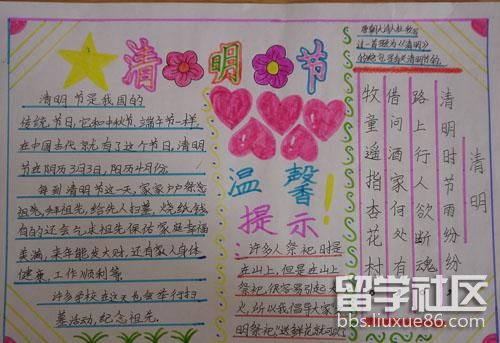 清明节
清明节是我国的
传统节日,它和中秋节、端午节一样
在中国古代就有了这个节日,清明
节在阴历3月3日,阳历4月份。
每到清明节这一天,家家户户祭念
祖先,拜祖先,给先人扫墓,烧纸钱,
有的还会乞求祖先保佑家庭幸福
美满,来年能发大财,还有家人身体
健康,工作顺利等。
许多学校在这天也会举行扫
墓活动,纪念祖先。
温馨
提示!
许多人祭祀时是
在山上,但是在山上
祭祀,很容易引起火
灾,所以我倡导大家
明祭祀"送鲜花就可以
唐朝大诗人杜牧写
过一首题为《清明》
的绝句
清明
清明时节雨纷纷
路上行人欲断魂
借问酒家何处有
牧童遥指杏花村
留学社区
bbs.liuxue86.com